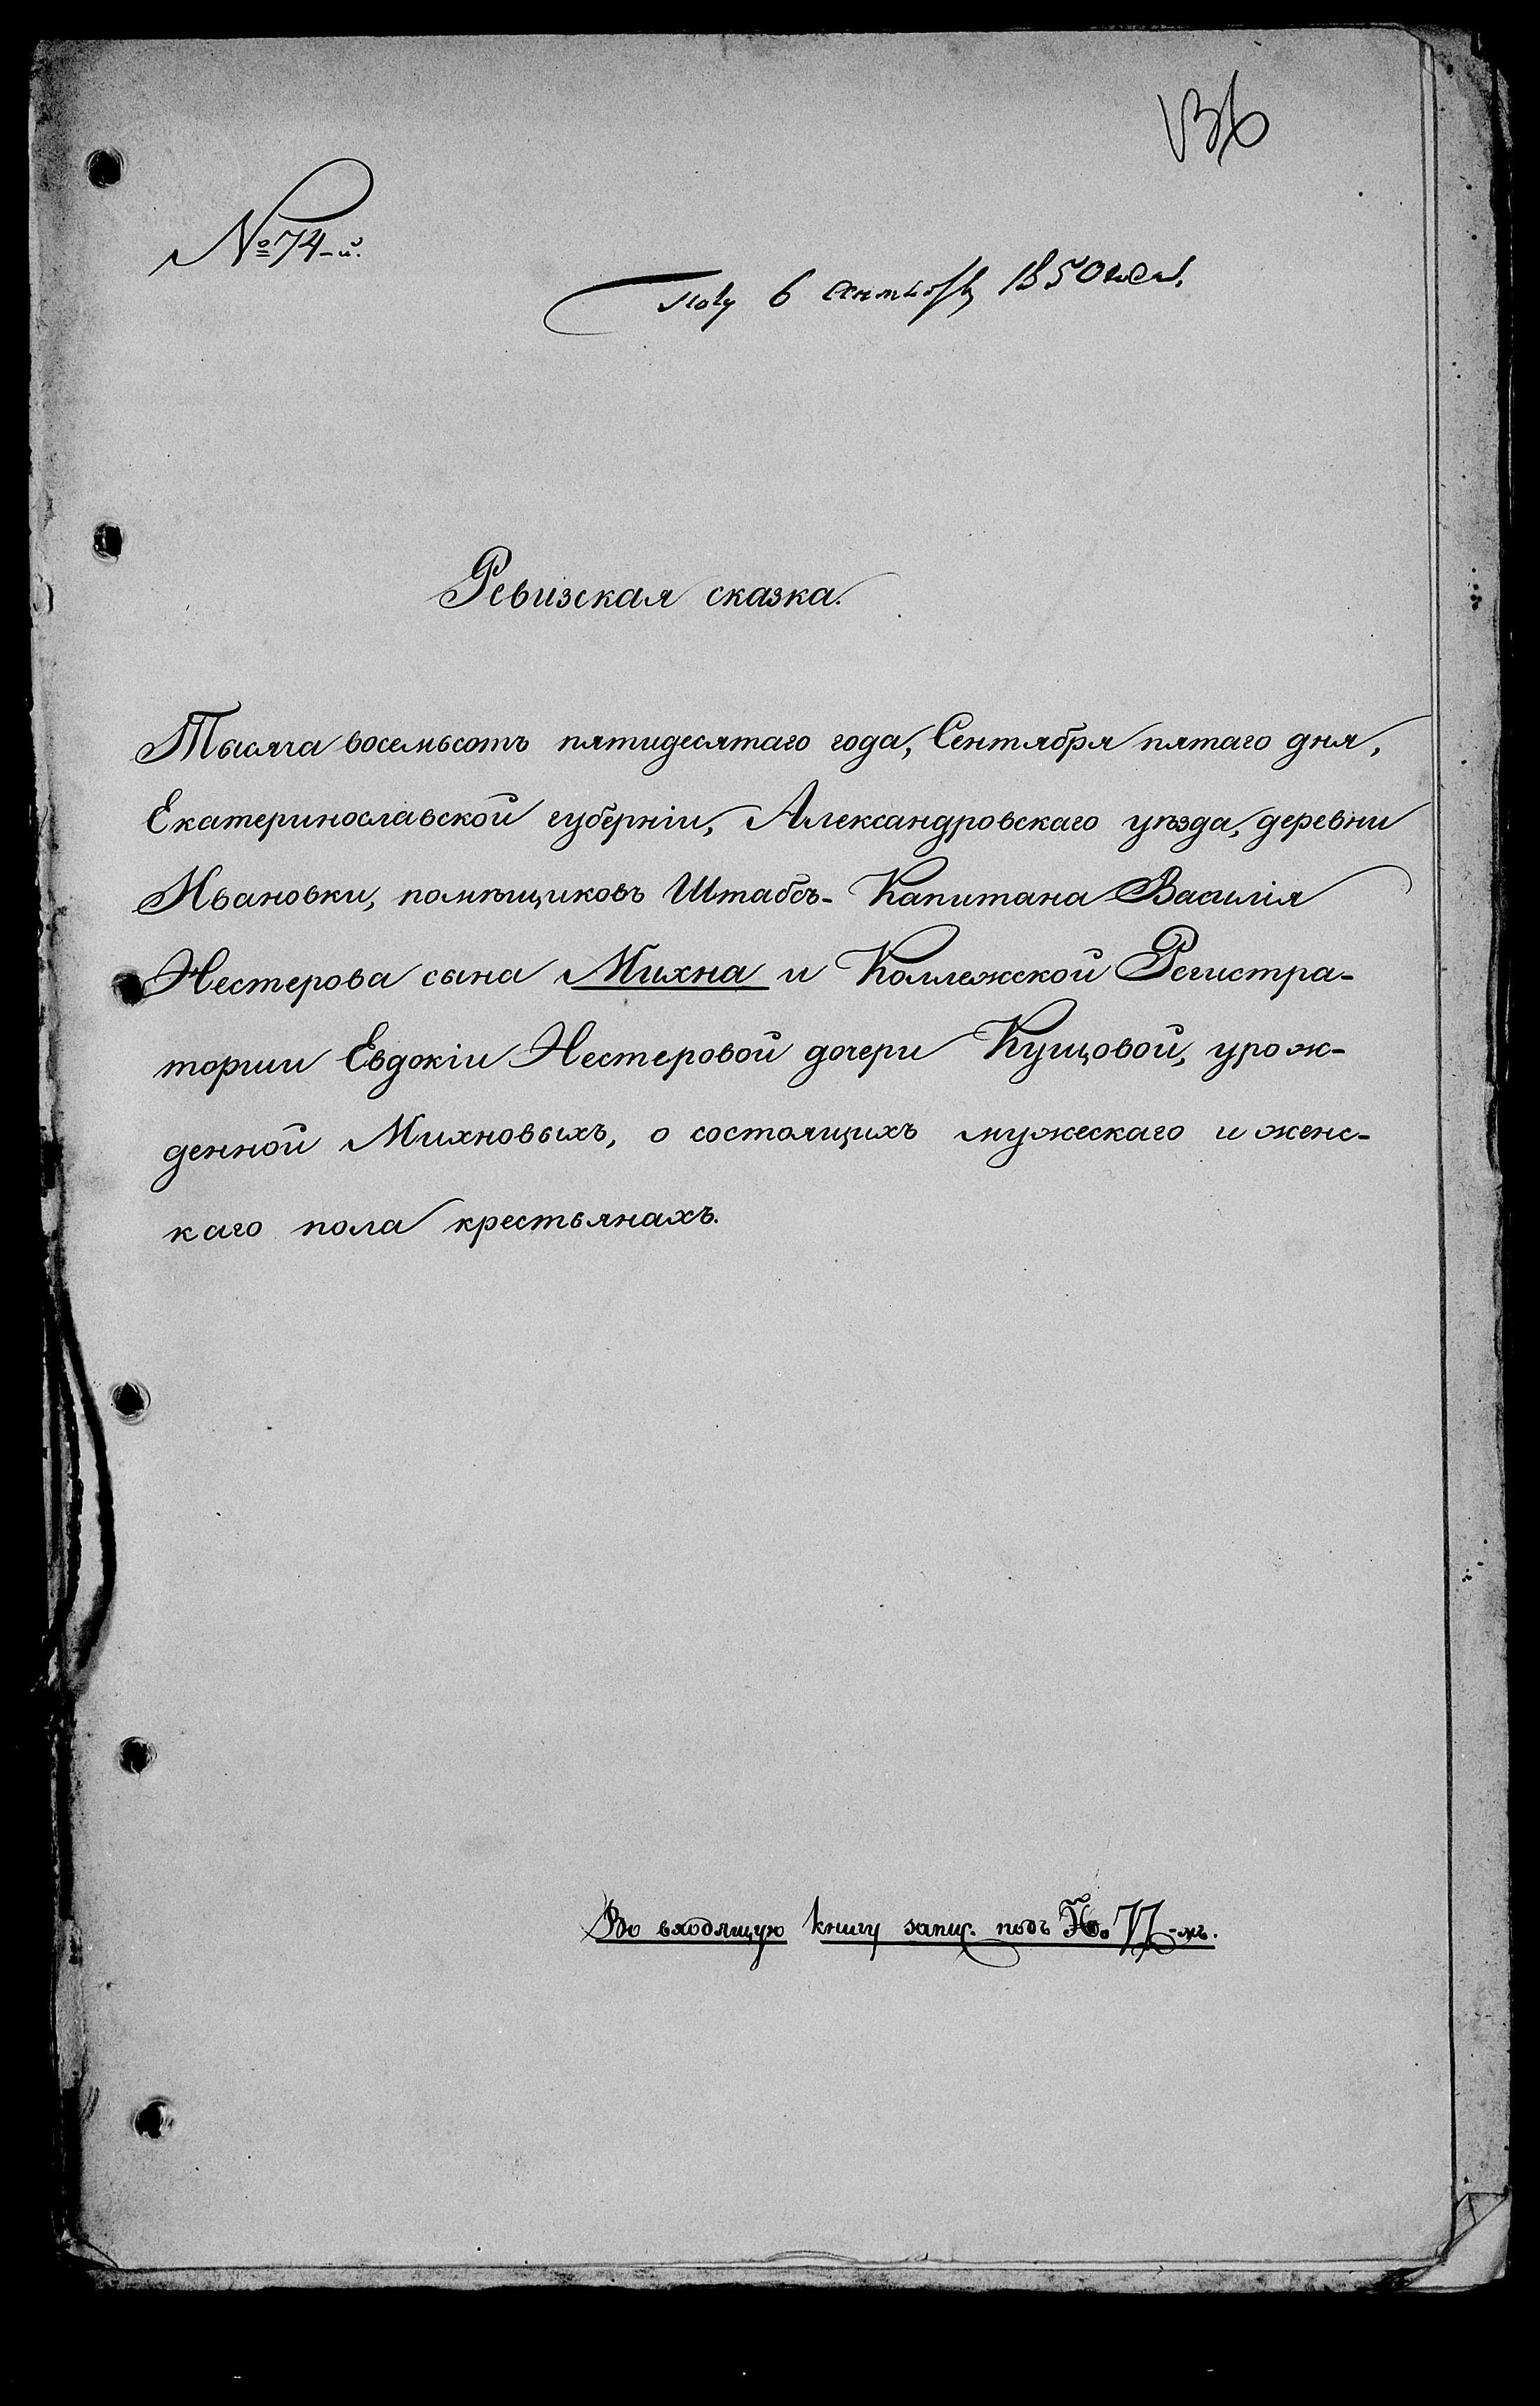 136
№ 74-й.
Полу 6 сентября 1850 года.
Ревизская сказка.
Тысяча восемьсотъ пятидесятаго года, Сентября пятаго дня,
Екатеринославской губерніи, Александровскаго уѣзда, деревни
Ивановки, помѣщиковъ Штабсъ-Капитана Василія
Нестерова сына Михна и Коллежской Регистра-
торши Евдокіи Нестеровой дочери Кущовой, урож-
денной Михновыхъ, о состоящихъ мужескаго и женс-
каго пола крестьянахъ.
Во входящую книгу запис. подъ No.